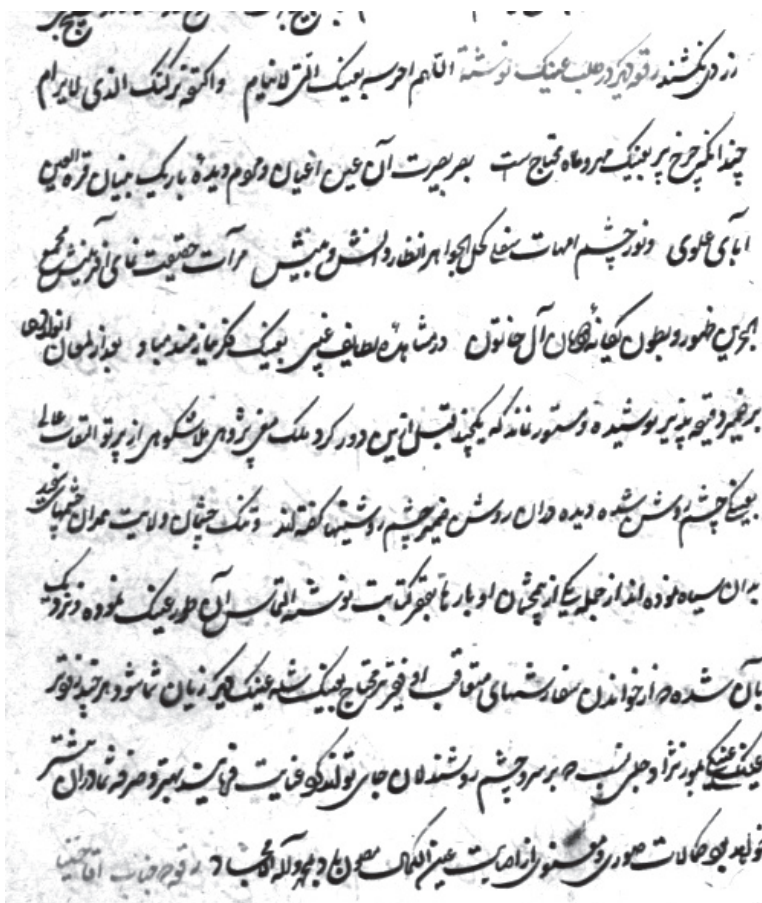 زر دل نکشند رقعه دیگر در طلب عینک نوشته اللهم احرسه بعینک التی لاتنام واکنفه برکنک الذی لایرام
چندانکه چرخ پر بعینک مهر و ماه محتاج است بصر بصیرت آن عین اعیان و مردم دیده باریک بینان قرة العین
آبای علوی و نور چشم امهات سفلی کحل الجواهر انظار دانش و بینش مرآت حقیقت نمای آفرینش مجمع
البحرین ظهور و بطون آل خاتون در مشاهده لطایف غیبی بعینک فکر نیازمند مباد بعد از لمعان
بر ضمیر دقیقه پذیر پوشیده و مستور نماند که یکچند قبل ازین در ملک معنی پژوهی از پرتو التفات عالی
بعینکی چشم روشن شده دیده وران روشن ضمیر چشم روشنیها گفته اند و تنک چشمان ولایت همدان چشمها
بدان سیاه نموده اند از جمله یکی از همچشمان او بارها بفقیر کتابت نوشته التماس آن طور عینک نموده و نزدیک
بآن شده که از خواندن سفارشهای متعاقب او فقیر نیز محتاج بعینک شده عینک دیگر زیان شما شود هر چند زودتر
عینکی بلور نژاد حلبی نسب که بر سر و چشم روشندلان جای تواند کرد عنایت فرمایند بهتر و صرفه شما در آن بیشتر
خواهد بود کمالات صوری و معنوی از اصابت عین الکمال مصون باد بمحمد وآله الامجاد رقعه جناب آقا